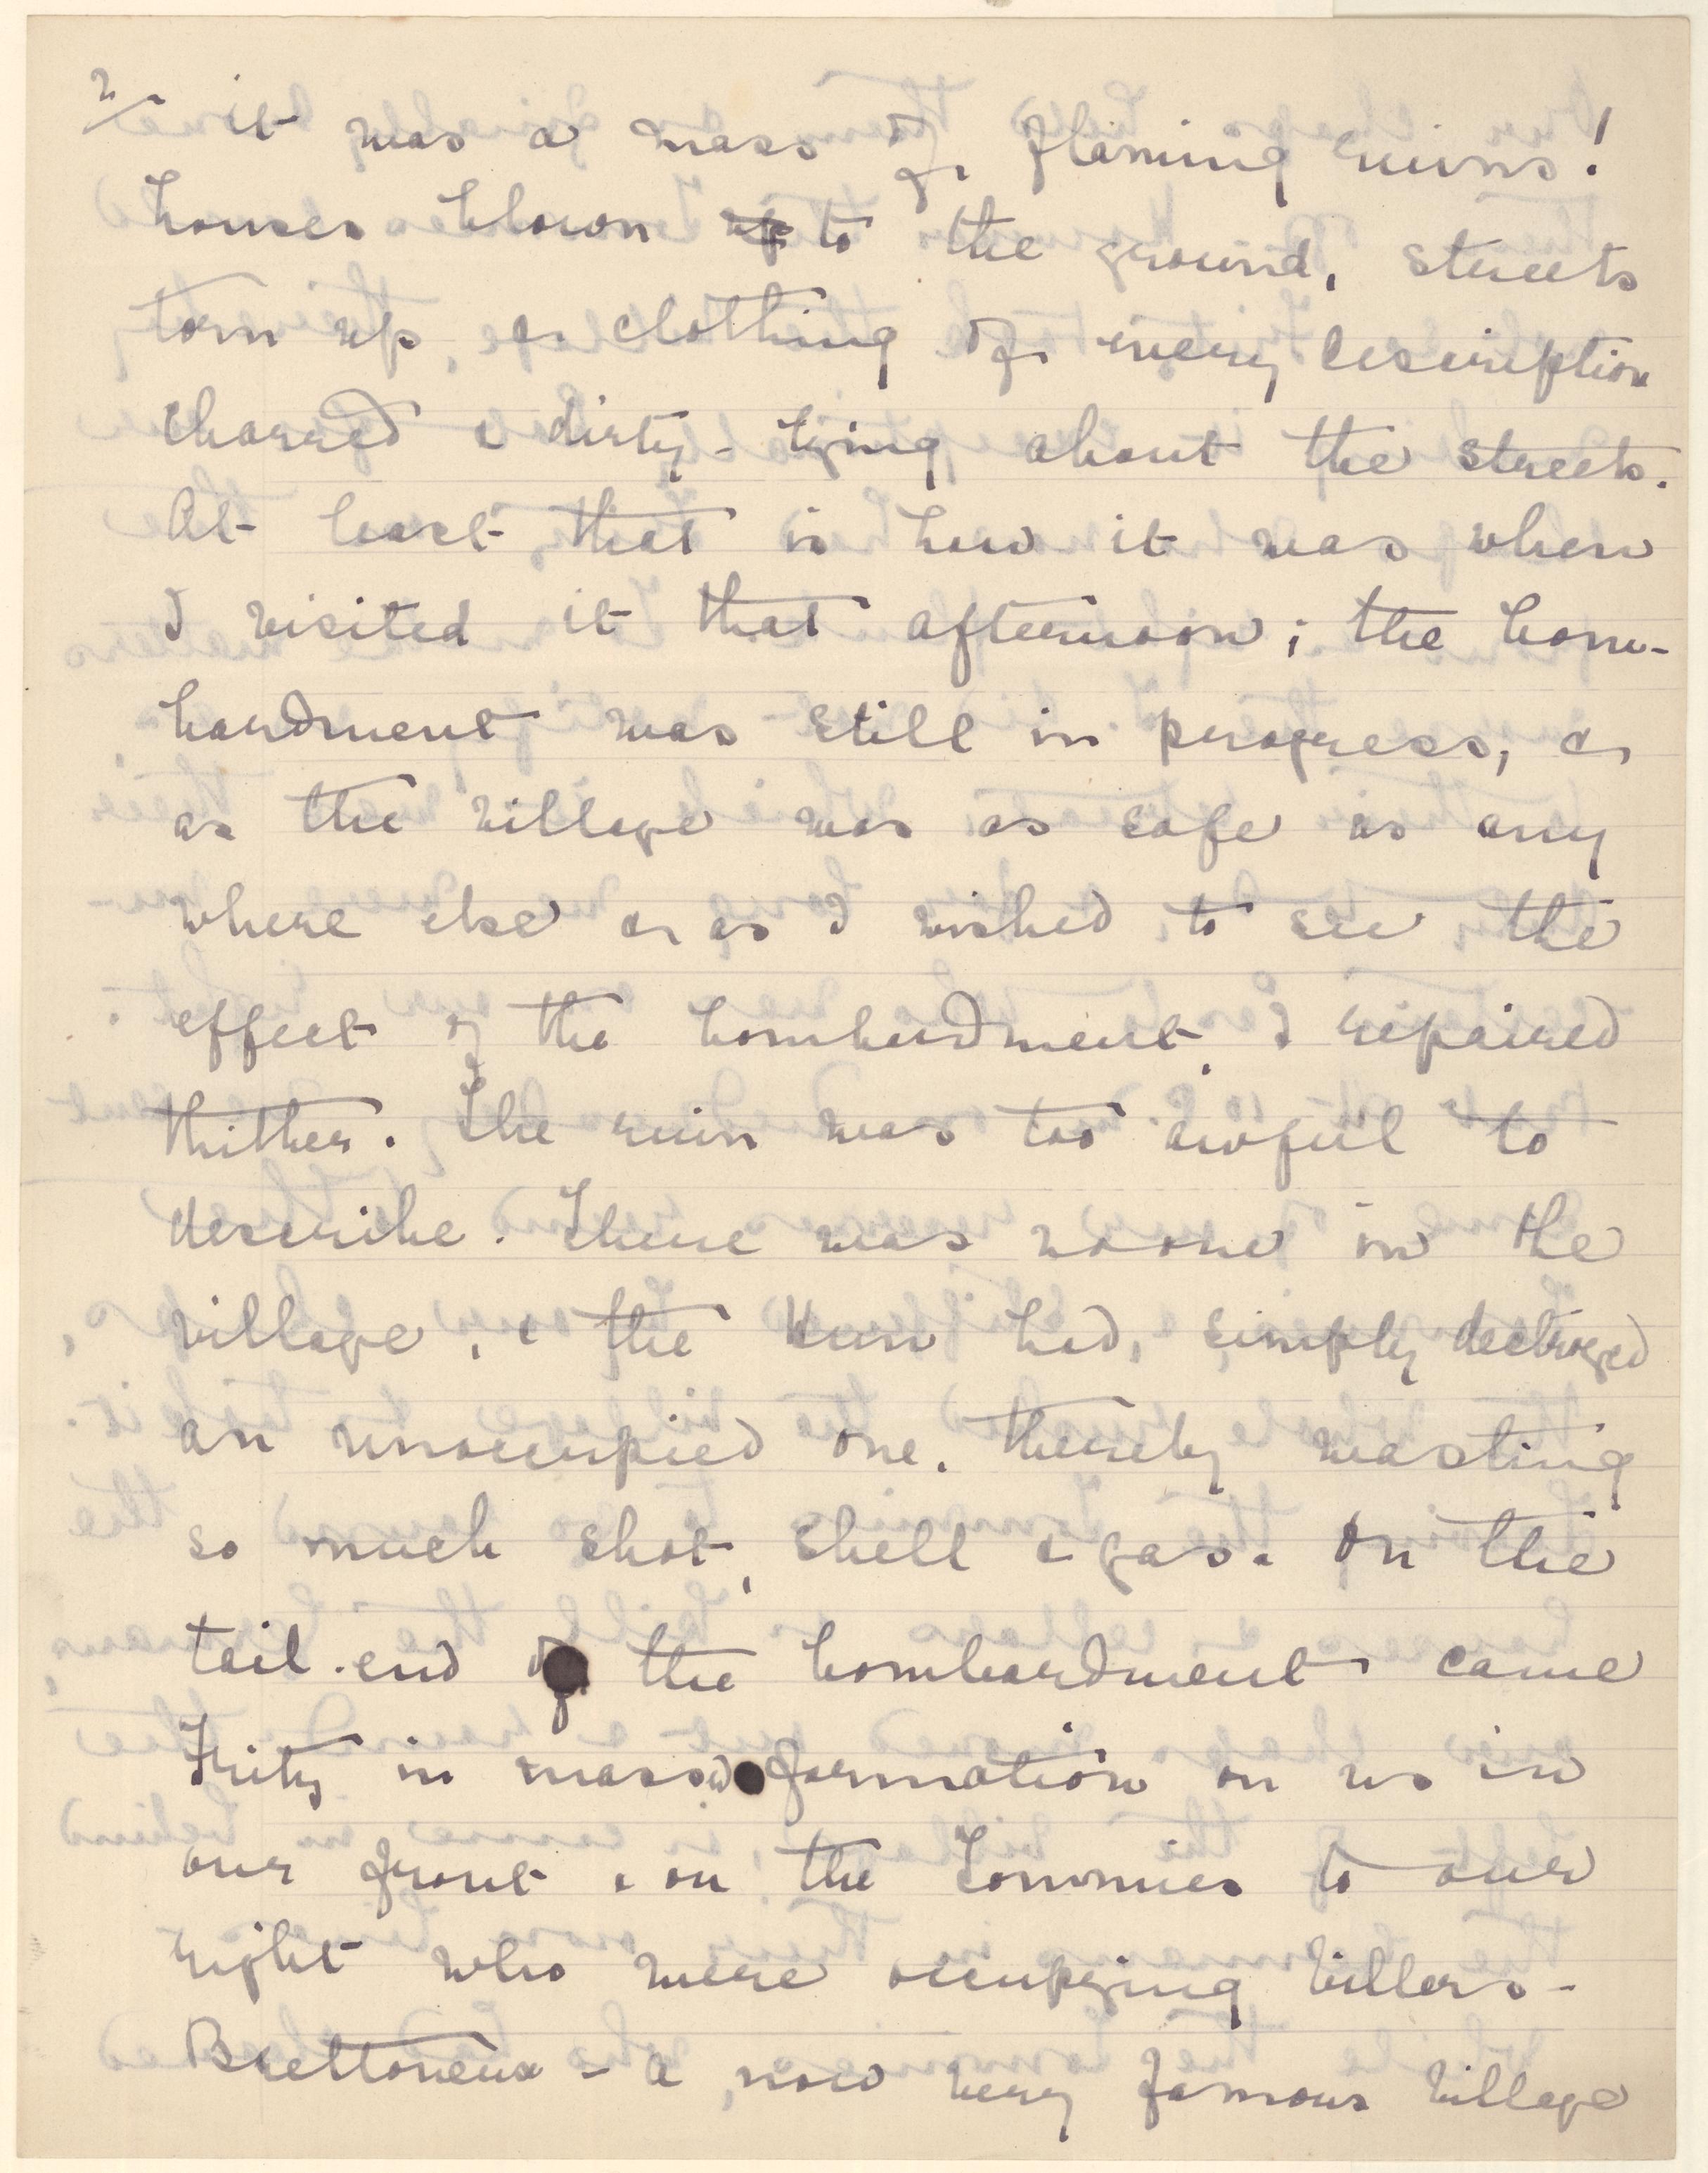 2/ it was a mass of flaming ruins!
houses blown up to the ground, streets
torn up, & clothing of every description
charred & dirty - lying about the streets.
At least that is how it was when
I visited it that afternoon; the bom-
bardment was still in progress, &
as the village was as safe as any
where else & as I wished to see the
effect of the bombardment, I repaired
thither. The ruin was too awful to
describe. There was no one in the
village, & the Hun had, simply destroyed
an unoccupied one, thereby wasting
so much shot, shell & gas. On the
tail-end of the bombardment came
Fritz in massed formation on us in
our front & on the Tommies to our
right who were occupying Villers-
Brettoneux - a, now very famous village